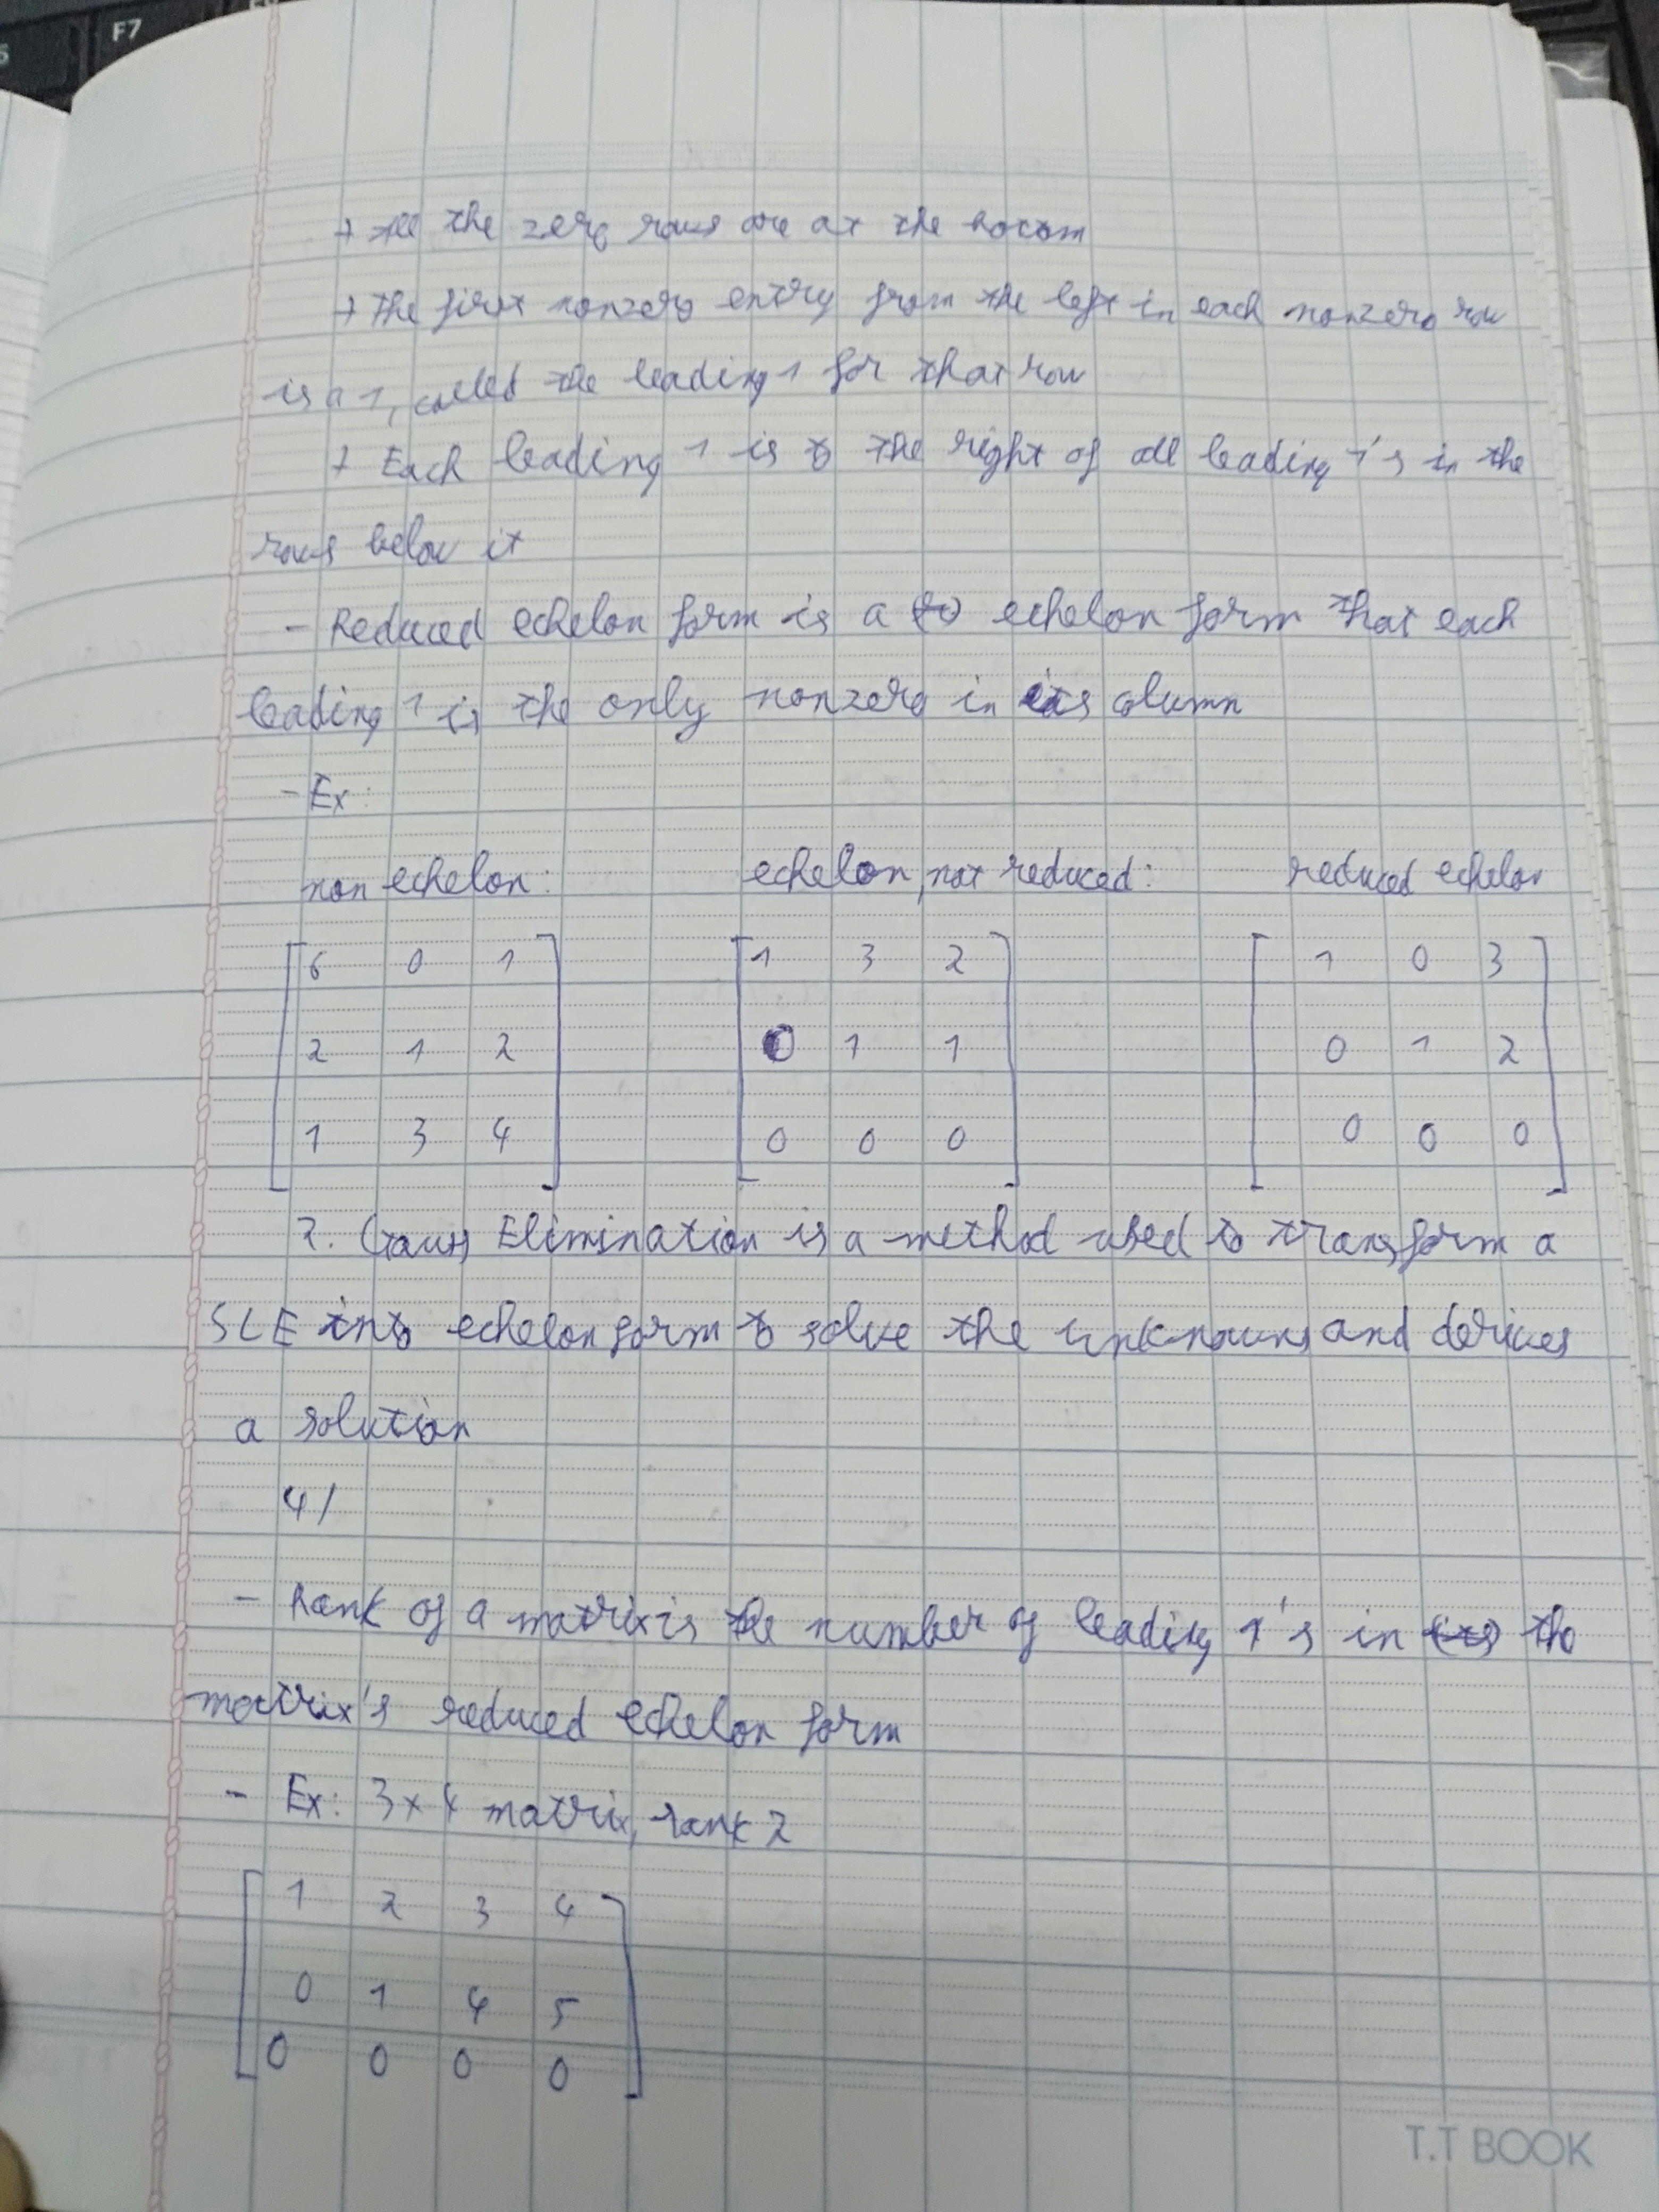 F7
+ All the zero rows are at the bottom
+ The first nonzero entry from the left in each nonzero row
is a 1, called the leading 1 for that row
+ Each leading 1 is to the right of all leading 1's in the
rows below it
- Reduced echelon form is a echelon form that each
leading 1 is the only nonzero in its column
- Ex:
non echelon: echelon, not reduced: reduced echelon
6 0 1 1 3 2 1 0 3
2 1 2 0 1 1 0 1 2
1 3 4 0 0 0 0 0 0
2. Gauss Elimination is a method used to transform a
SLE into echelon form to solve the unknowns and derives
a solution
4/
- Rank of a matrix is the number of leading 1's in the
matrix's reduced echelon form
- Ex: 3x4 matrix, rank 2
1 2 3 4
0 1 4 5
0 0 0 0
T.T BOOK